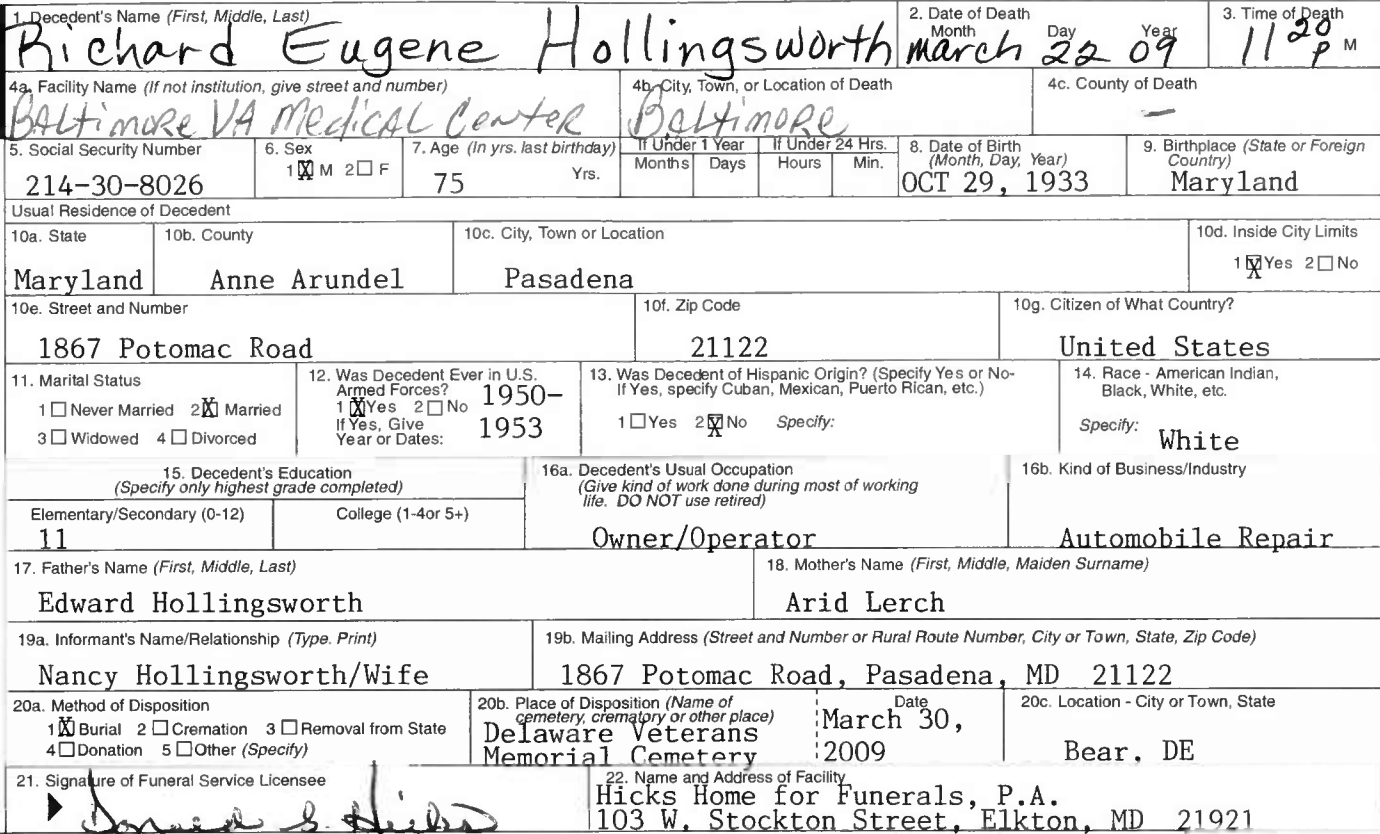 1. Decedent's Name (First, Middle, Last)
Richard Eugene Hollingsworth
2. Date of Death
Month Day Year
march 22 09
3. Time of Death
11 20 P M
4a. Facility Name (If not institution, give street and number)
Baltimore VA Medical Center
4b. City, Town, or Location of Death
Baltimore
4c. County of Death
—
5. Social Security Number
214-30-8026
6. Sex
1 X M 2 ☐ F
7. Age (In yrs. last birthday)
75 Yrs.
If Under 1 Year
Months Days
If Under 24 Hrs.
Hours Min.
8. Date of Birth
(Month, Day, Year)
OCT 29, 1933
9. Birthplace (State or Foreign
Country)
Maryland
Usual Residence of Decedent
10a. State
Maryland
10b. County
Anne Arundel
10c. City, Town or Location
Pasadena
10d. Inside City Limits
1 X Yes 2 ☐ No
10e. Street and Number
1867 Potomac Road
10f. Zip Code
21122
10g. Citizen of What Country?
United States
11. Marital Status
1 ☐ Never Married 2 X Married
3 ☐ Widowed 4 ☐ Divorced
12. Was Decedent Ever in U.S.
Armed Forces?
1 X Yes 2 ☐ No
If Yes, Give
Year or Dates:
1950-
1953
13. Was Decedent of Hispanic Origin? (Specify Yes or No-
If Yes, specify Cuban, Mexican, Puerto Rican, etc.)
1 ☐ Yes 2 X No Specify:
14. Race - American Indian,
Black, White, etc.
Specify: White
15. Decedent's Education
(Specify only highest grade completed)
Elementary/Secondary (0-12)
11
College (1-4or 5+)
16a. Decedent's Usual Occupation
(Give kind of work done during most of working
life. DO NOT use retired)
Owner/Operator
16b. Kind of Business/Industry
Automobile Repair
17. Father's Name (First, Middle, Last)
Edward Hollingsworth
18. Mother's Name (First, Middle, Maiden Surname)
Arid Lerch
19a. Informant's Name/Relationship (Type. Print)
Nancy Hollingsworth/Wife
19b. Mailing Address (Street and Number or Rural Route Number, City or Town, State, Zip Code)
1867 Potomac Road, Pasadena, MD 21122
20a. Method of Disposition
1 X Burial 2 ☐ Cremation 3 ☐ Removal from State
4 ☐ Donation 5 ☐ Other (Specify)
20b. Place of Disposition (Name of
cemetery, crematory or other place)
Delaware Veterans
Memorial Cemetery
Date
March 30,
2009
20c. Location - City or Town, State
Bear, DE
21. Signature of Funeral Service Licensee
Donald S. Hicks
22. Name and Address of Facility
Hicks Home for Funerals, P.A.
103 W. Stockton Street, Elkton, MD 21921